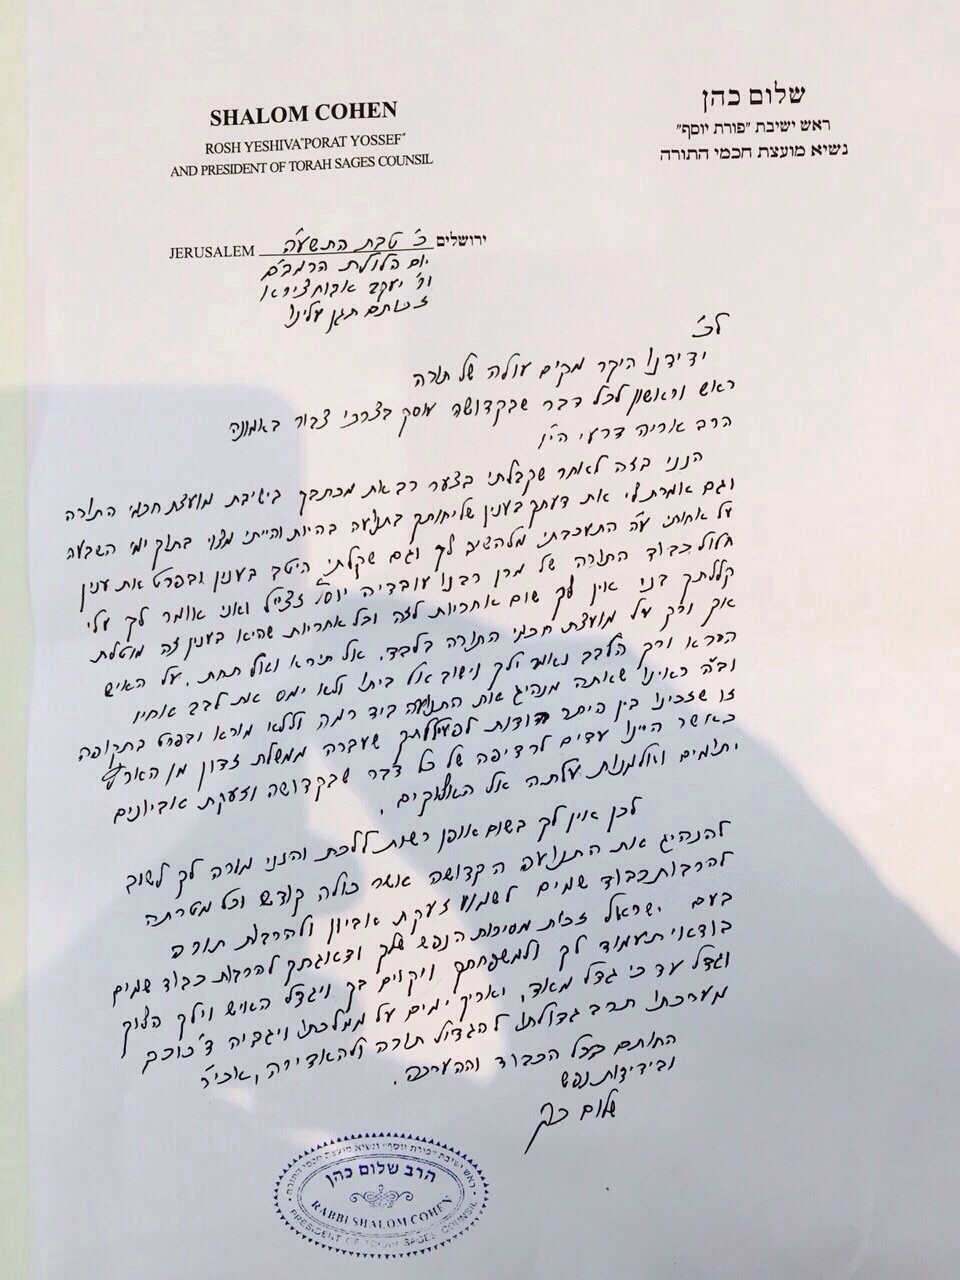 SHALOM COHEN
ROSH YESHIVA"PORAT YOSSEF"
AND PRESIDENT OF TORAH SAGES COUNSIL
שלום כהן
ראש ישיבת "פורת יוסף"
נשיא מועצת חכמי התורה
JERUSALEM כ' טבת התשע"ה ירושלים
יום הלולת הרמב"ם
ור' יעקב אבוחצירא
זכותם תגן עלינו
לכ'
ידידנו היקר מקים עולה של תורה
ראש וראשון לכל דבר שבקדושה עוסק בצרכי צבור באמונה
הרב אריה דרעי הי"ו
הנני בזה לאחר שקבלתי בצער רב את מכתבך בישיבת מועצת חכמי התורה
וגם אמרת לי את דעתך בענין שליחותך בתנועה בהיות והייתי מצוי בתוך ימי השבעה
על אחותי ע"ה התעכבתי מלהשיב לך וגם שקלתי היטב בענין ובפרט את ענין
חלול כבוד התורה של מרן רבנו עובדיה יוסף זצ"ל ואני אומר לך עלי
קללתך בני אין לך שום אחריות לזה וכל אחריות שהיא בענין זה מוטלת
אך ורק על מועצת חכמי התורה בלבד. אל תירא ואל תחת. על האיש
הירא ורך הלבב נאמר ילך וישוב אל ביתו ולא ימס את לבב אחיו
וב"ה ראינו שאתה מנהיג את התנועה ביד רמה וללא מורא ובפרט בתקופה
זו שזכינו בין היתר הודות לפעילותך שעברה ממשלת זדון מן הארץ
כאשר היינו עדים לרדיפה של כל דבר שבקדושה וזעקת אביונים
יתומים ואלמנות עלתה אל האלוקים.
לכן אין לך בשום אופן רשות ללכת והנני מורה לך לשוב
להנהיג את התנועה הקדושה אשר כולה קודש וכל מטרתה
להרבות כבוד שמים לשמוע זעקת אביון ולהרבות תורה
בעם ישראל זכות מסירות הנפש שלך ודאגתך להרבות כבוד שמים
בודאי תעמוד לך ולמשפחתך ויקוים בך ויגדל האיש וילך הלוך
וגדל עד כי גדל מאד, יאריך ימים על ממלכתו ויגביה כוכב
מערכתו תרב גדולתו להגדיל תורה ולהאדירה, אכי"ר
החותם בכל הכבוד וההערכה.
ובידידות נפש
שלום כהן
ראש ישיבת "פורת יוסף" ונשיא מועצת חכמי התורה
הרב שלום כהן
RABBI SHALOM COHEN
PRESIDENT OF TORAH SAGES COUNSIL